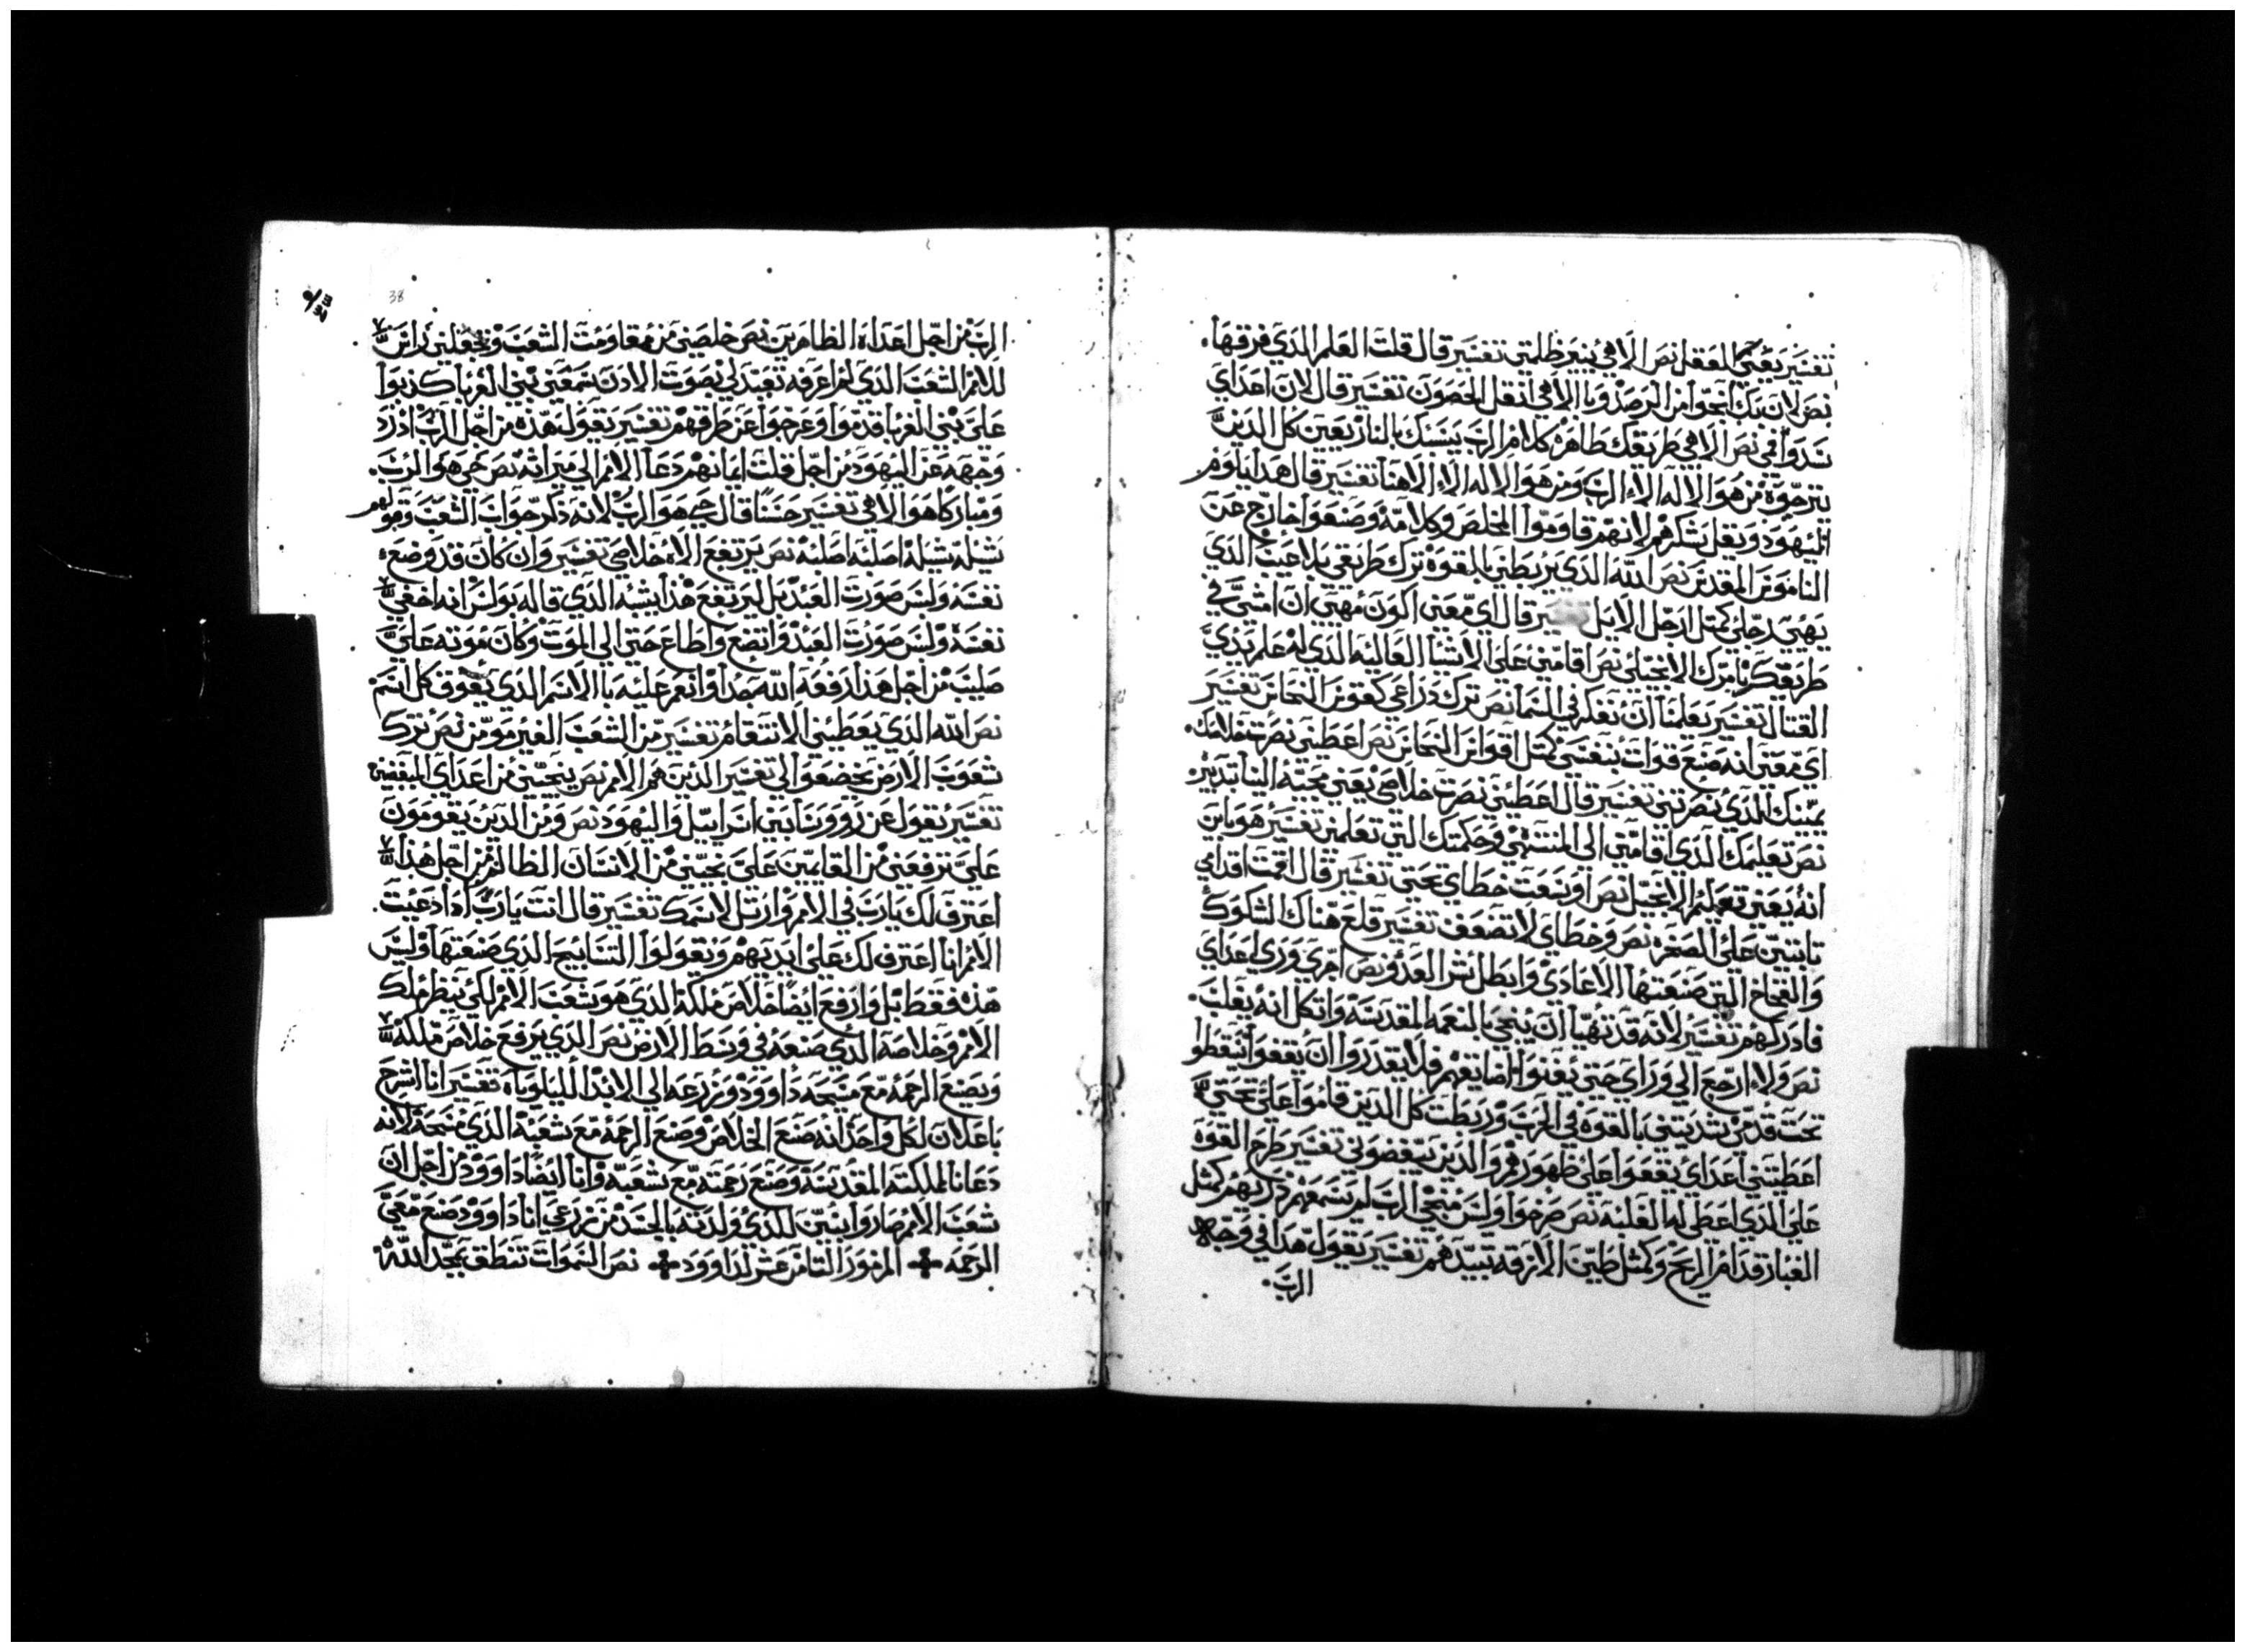 تفسير يعني العقل نص الاهي ينير ظلمتي تفسير قال قلت العلم الذي فرقها.
نص لان بك انجوا من الرصد وبالاهي انقل الحصون تفسير قال الان اعداي
تدوا في نص الاهي طريقك طاهره كلام الرب يسبك بالنار يعين كل الدين
يترجوه من هو الاله الا الرب ومن هو الاله الا الاهنا تفسير قال هدا يلوم
اليهود ويقل شكرهم لانهم قاوموا المخلص وكلامه وصنعوا خارج عن
الناموس المقدس نص الله الدي يربطني بالقوه ترك طريقي بلا عيب الدي
يهيي رجلي كمتل ارجل الايل تفسير قال اي معني اكون مهيي ان امشي في
طريقك بامرك الانجيلي نص اقامني علي الاشيا العاليه الدي له علم يدي
القتال تفسير يعلمنا ان نفكر في السما نص ترك دراعي كقوس النحاس تفسير
اي معني انه صنع قوات بنفسي كمتل اقواس النحاس نص اعطني نصرت خلاصك.
يمينك الدي نصرتني تفسير قال اعطيني نصرت خلاصي يعني مجيه الينا تدبير
نص تعليمك الدي اقامني الي المنتهي وحكمتك التي تعلمني تفسير هو باين
انه يعني تعليم الانجيل نص اوسعت خطاي تحتي تفسير قال اقمت اقدامي
تابتين علي الصخره نص وخطاي لا تضعف تفسير قلع هناك الشكوك
والفخاخ التي صنعتها الاعادي وابطل شر العدو نص اجري وري اعداي
فادركهم تفسير لانه قد تهيا ان ينجي بالنعمه المقدسه واتكل انه يغلب.
نص ولا ارجع الي وراي حتي يفنوا اضايقهم فلا يقدروا ان يقفوا يسقطوا
تحت قدمي شديتني بالقوه في الحرب وربطت كل الدين قاموا علي تحتي
اعطيتني اعداي يقفوا علي ظهورهم والدين يبغضوني تفسير طرح القوه
علي الدي اعطي له الغلبه نص صرخوا وليس منجي الرب لم يسمعهم دريهم كمثل
الغبار قدام الريح وكمثل طين الازقه تبيدهم تفسير يقول هدا في وجه
الرب.
38
الرب من اجل اعداه الظاهرين نص خلصني من مقاومت الشعب وتجعلني راس
للامم الشعب الدي لم اعرفه تعبد لي بصوت الادن سمعني بني الغربا كدبوا
علي بني الغربا قدموا وعرجوا عن طرقهم تفسير يقول هده من اجل الرب ادرد
وجهه عن اليهود من اجل قلت ايمانهم دعا الامم الي ميراته نص حي هو الرب.
ومبارك هو الاهي تفسير حسنا قال حي هو الرب لانه ذكر جواب الشعب وقولهم
شيله شيله اصلبه اصلبه نص يرتفع الاه خلاصي تفسير وان كان قد وضع
نفسه ولبس صورت العبد بل ليرتفع هدا يشبه الدي قاله بولس انه اخفي
نفسه ولبس صورت العبد واتضع واطاع حتي الي الموت وكان موته علي
صليب من اجل هدا رفعه الله جدا وانعم عليه بالاسم الدي يفوق كل اسم
نص الله الدي يعطيني الانتقام تفسير من الشعب الغير مومن نص ترك
شعوب الارض يخضعوا الي تفسير الدين هم الامم نص ينجيني من اعداي المبغضين
تفسير يقول عن روورسا بني اسراييل واليهود نص ومن الدين يقومون
علي ترفعني من القايمين علي نجيني من الانسان الظالم من اجل هذا
اعترف لك يارب في الامم وارتل لاسمك تفسير قال انت يارب ادا دعيت.
الامم انا اعترف لك علي ايديهم ويقولوا التسابيح الدي صنعتها وليس
هده فقط بل وارفع ايضا خلاص ملكه الدي هو شعب الامم لكي ينظر ملك
الامم وخلاصه الدي صنعه في وسط الارض نص الدي يرفع خلاص ملكه
ويصنع الرحمه مع مسيحه داوود وزرعه الي الابد الليلوياه تفسير انا اشرح
باعلان لكل واحد انه صنع الخلاص وصنع الرحمه مع شعبه الدي مسحه لانه
دعانا لملكته المقدسه وصنع رحمته مع شعبه وانا ايضا داوود من اجل ان
شعب الامم صاروا بنين للدي ولدته بالجسد من زرعي انا داوود صنع معي
الرحمه ✤ المزمور التامن عشر لداوود ✤ نص السموات تنطق بمجد الله